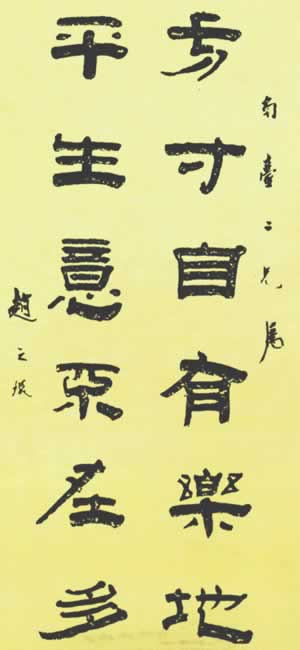 南臺二兄屬
方寸自有樂地
平生意不在多
趙之琛